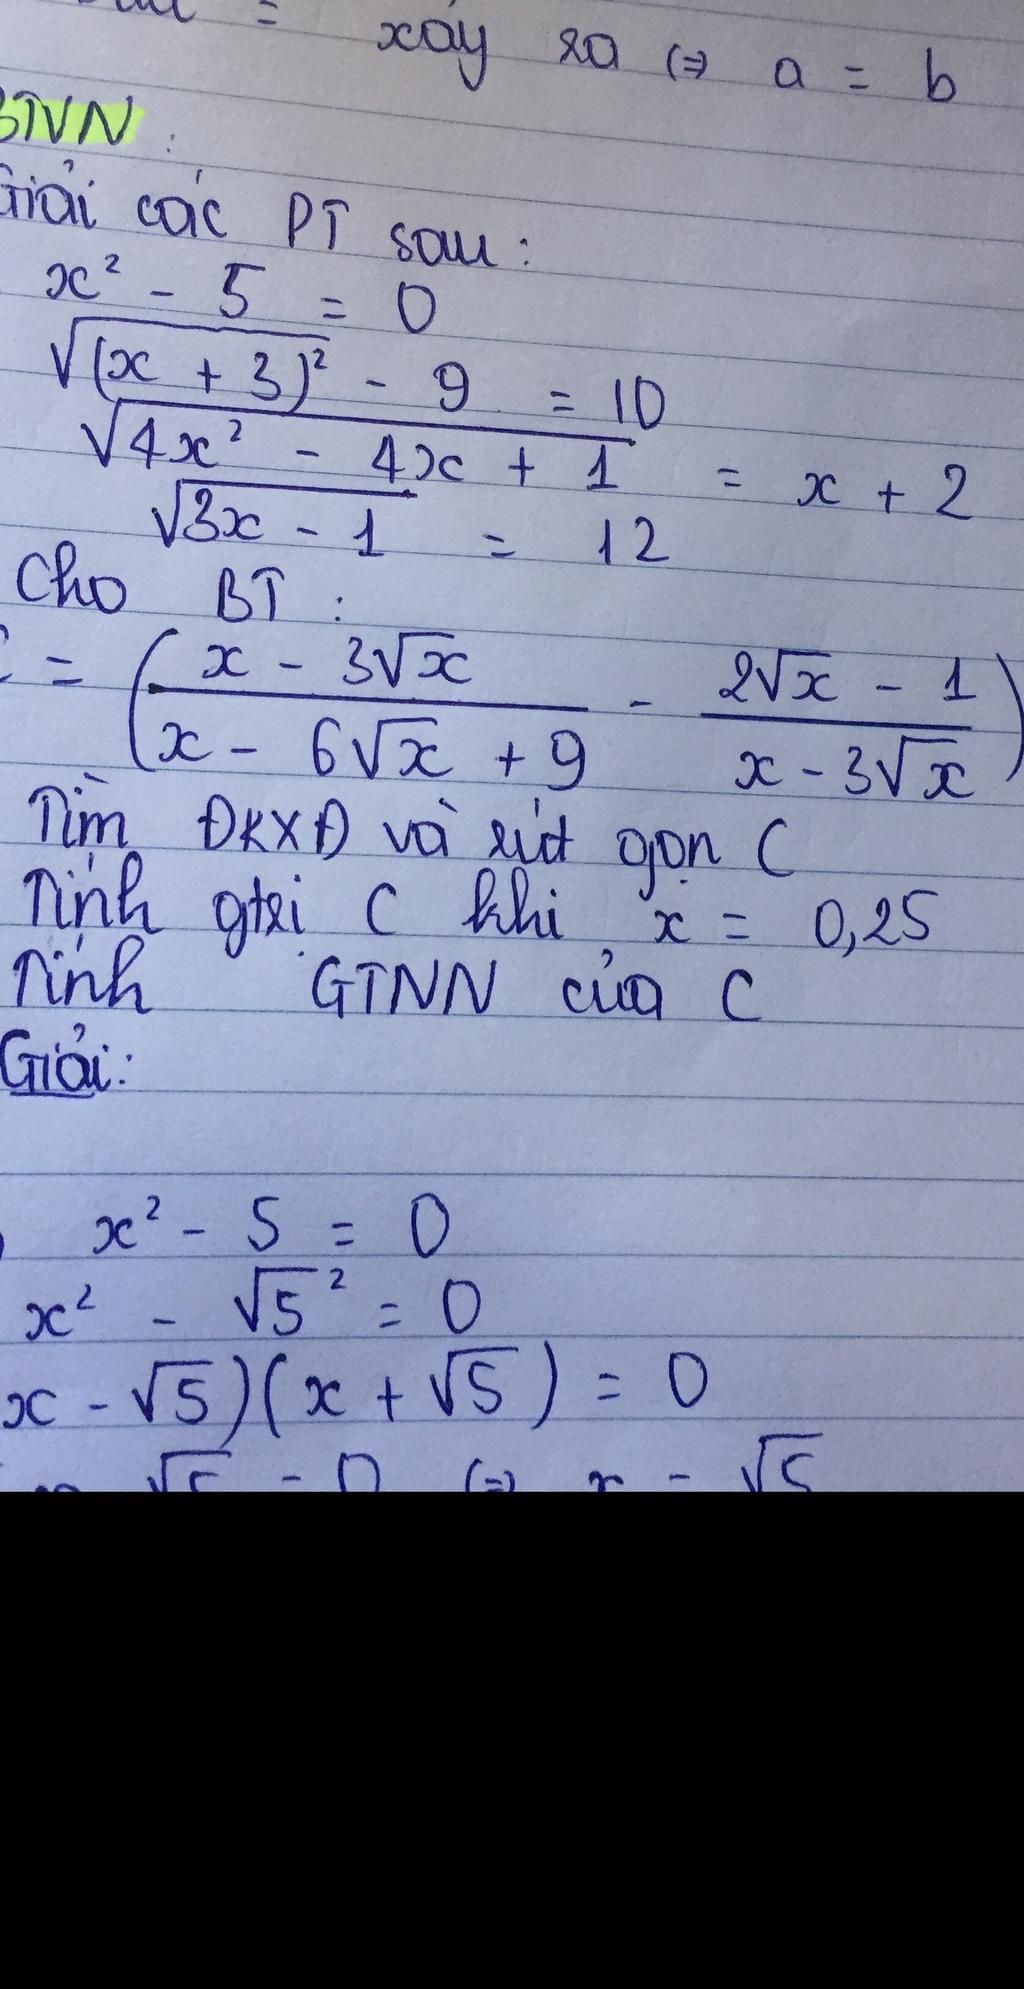 = xảy ra (=) a = b
BTVN :
Giải các PT sau :
x² - 5 = 0
√(x + 3)² - 9 = 10
√4x² - 4x + 1 = x + 2
√3x - 1 = 12
Cho BT :
= (x - 3√x / x - 6√x + 9 - 2√x - 1 / x - 3√x)
Tìm ĐKXĐ và rút gọn C
Tính gtrị C khi x = 0,25
Tính GTNN của C
Giải:
x² - 5 = 0
x² - √5² = 0
x - √5)(x + √5) = 0
√5 = 0 (=) x = √5